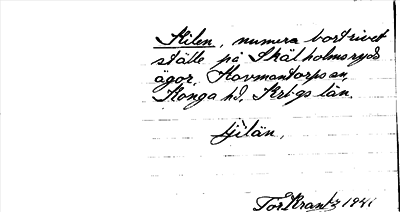 Kilen, numera bortrivet
ställe på Skälholmsryds
ägor, Hovmantorps sn,
Konga hd, Kr-gs län.
çilän,
Tor Krantz 1941